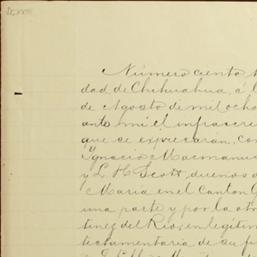 Número ciento
dad de Chihuahua, á
de Agosto de mil ocho
ante mi el infrascri
que se expresarán, com
Ygnacio Macmanu
y L. H. Scott, dueños d
Maria en el Canton
una parte y por la otra
tinez del Rio, en legitim
testamentaria de su